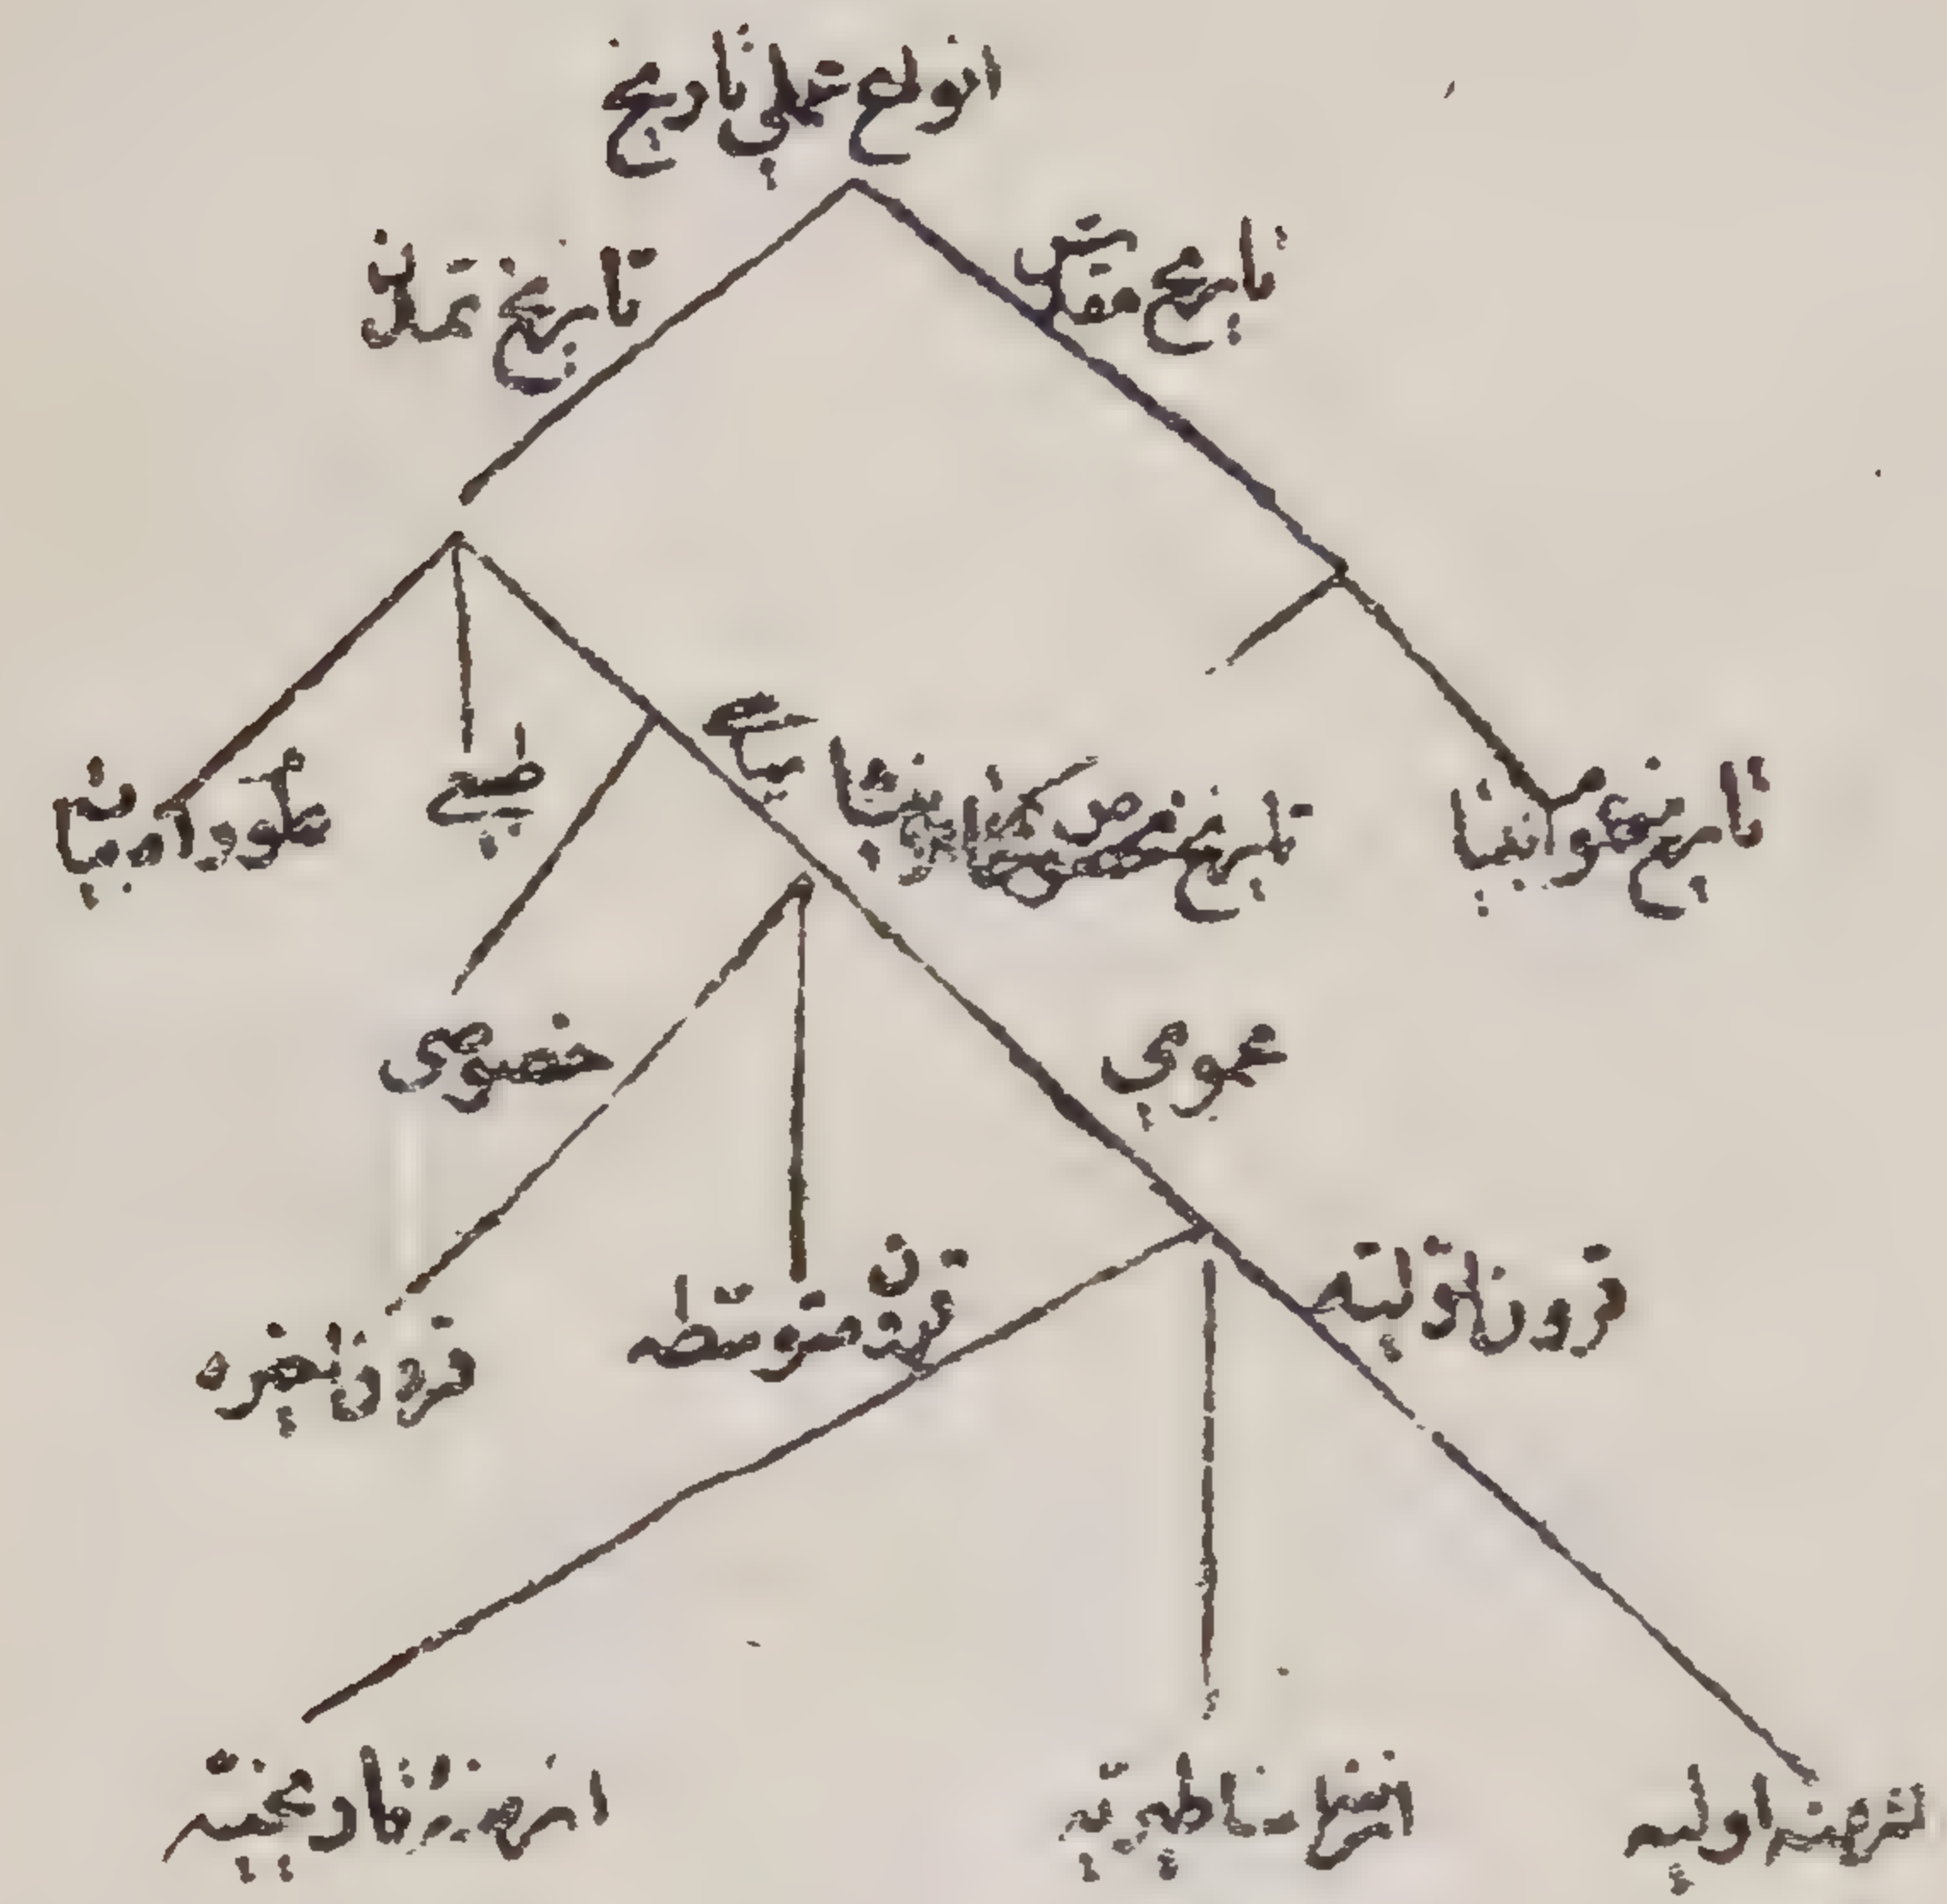 انواع عملی تاریخ
تاریخ مقدس
تاریخ تمدن
تاریخ عمو انبیا
تاریخ
سیاسی
طبیعی
علوم و ادبیات
عمومی
خصوصی
قرون اولیه
قرون متوسطه
قرون اخیره
ازمنه اولیه
ازمنه اساطیریه
ازمنه تاریخیه